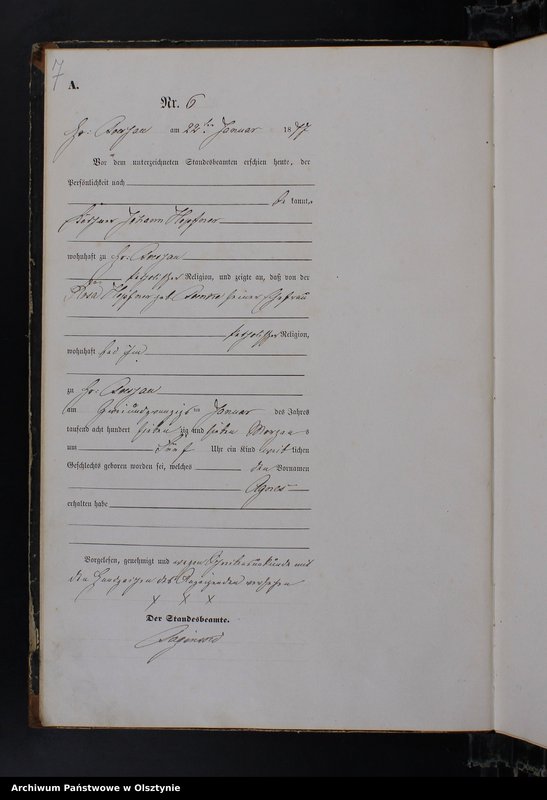 7
A.
Nr. 6
am 22ten Januar 1877
Vor dem unterzeichneten Standesbeamten erschien heute, der
Persönlichkeit nach
be kannt,
Johann Hepfner
wohnhaft zu Gr:
katholischer Religion, und zeigte an, daß von der
Rosa Hepfner geb. seiner Ehefrau
katholischer Religion,
wohnhaft bei ihm
zu Gr:
am zweiundzwanzigsten Januar des Jahres
tausend acht hundert sieben zig und sieben Morgens
um fünf Uhr ein Kind weiblichen
Geschlechts geboren worden sei, welches den Vornamen
Agnes
erhalten habe
Vorgelesen, genehmigt und wegen mit
den Handzeichen des Anzeigenden versehen
x x x
Der Standesbeamte.
Archiwum Państwowe w Olsztynie